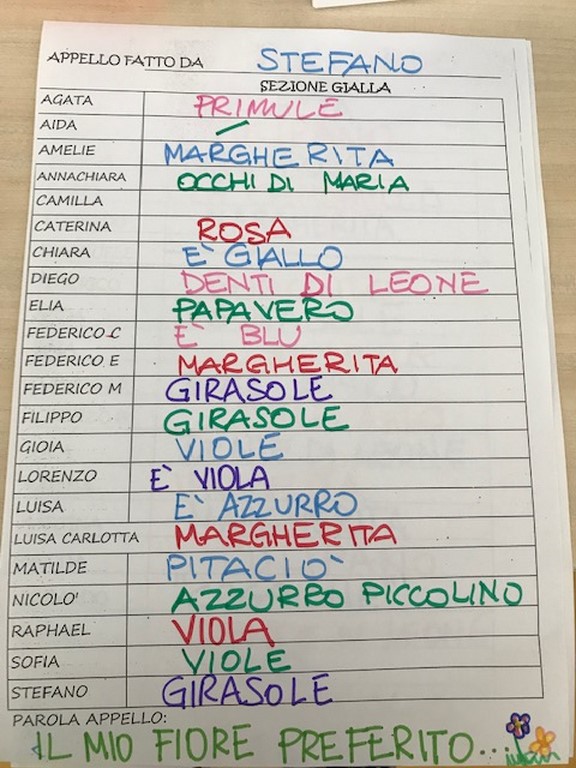 APPELLO FATTO DA STEFANO
SEZIONE GIALLA
AGATA PRIMULE
AIDA
AMELIE MARGHERITA
ANNACHIARA OCCHI DI MARIA
CAMILLA
CATERINA ROSA
CHIARA E' GIALLO
DIEGO DENTI DI LEONE
ELIA PAPAVERO
FEDERICO C E' BLU
FEDERICO E MARGHERITA
FEDERICO M GIRASOLE
FILIPPO GIRASOLE
GIOIA VIOLE
LORENZO E' VIOLA
LUISA E' AZZURRO
LUISA CARLOTTA MARGHERITA
MATILDE PITACIO'
NICOLO' AZZURRO PICCOLINO
RAPHAEL VIOLA
SOFIA VIOLE
STEFANO GIRASOLE
PAROLA APPELLO:
IL MIO FIORE PREFERITO...